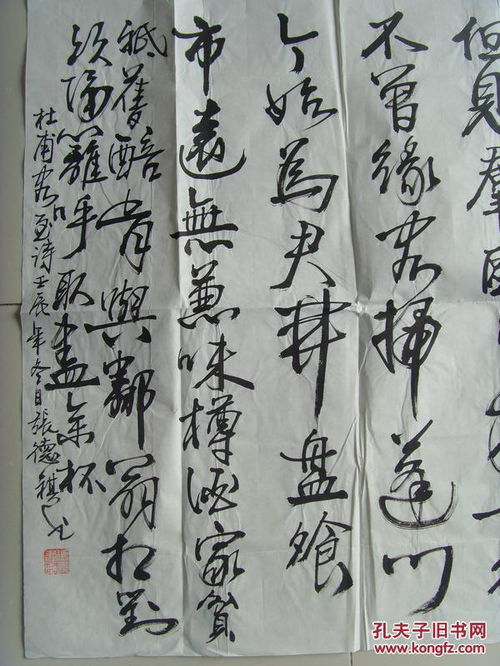 但見羣鷗
不曾緣客掃蓬門
今始為君開盤飧
市遠無兼味樽酒家貧
祇舊醅肯與鄰翁相對
飲隔籬呼取盡餘杯
杜甫客至诗壬辰年冬日張德
孔夫子旧书网
www.kongfz.com